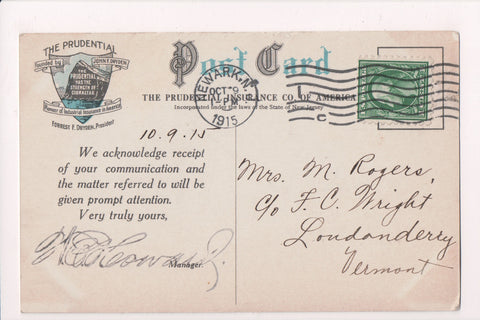 THE PRUDENTIAL
Founded by JOHN F. DRYDEN
THE PRUDENTIAL
HAS THE
STRENGTH OF
GIBRALTAR
Pioneer of Industrial Insurance in America
FORREST F. DRYDEN, President
Post Card
NEWARK, N.J.
OCT 9
PM
1915
THE PRUDENTIAL INSURANCE CO. OF AMERICA
Incorporated under the laws of the State of New Jersey
10.9.15
We acknowledge receipt
of your communication and
the matter referred to will be
given prompt attention.
Very truly yours,
Howard
Manager.
Mrs. M. Rogers,
c/o F. C. Wright
Loudonderry
Vermont